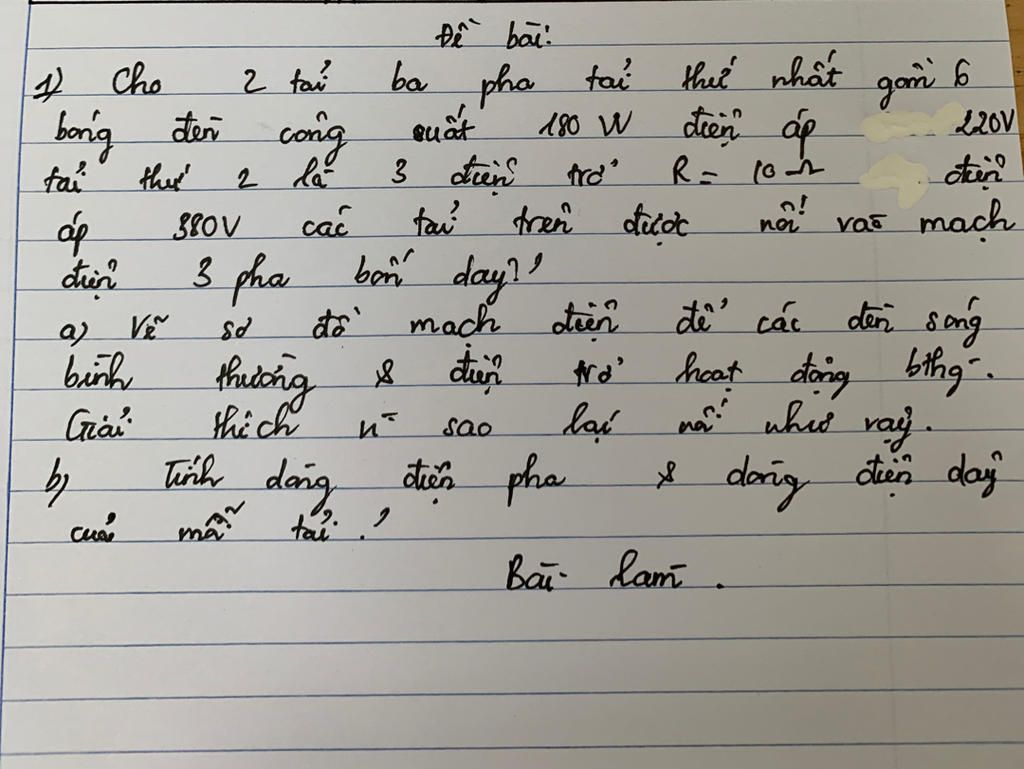 Đề bài:
1) Cho 2 tải ba pha tải thứ nhất gồm 6
bóng đèn công suất 180 W điện áp 220V
tải thứ 2 là 3 điện trở R = 10 Ω điện
áp 380V các tải trên được nối vào mạch
điện 3 pha bốn dây?
a) Vẽ sơ đồ mạch điện để các đèn sáng
bình thường & điện trở hoạt động bthg.
Giải thích vì sao lại nối như vậy.
b) Tính dòng điện pha & dòng điện dây
của mỗi tải.
Bài làm.